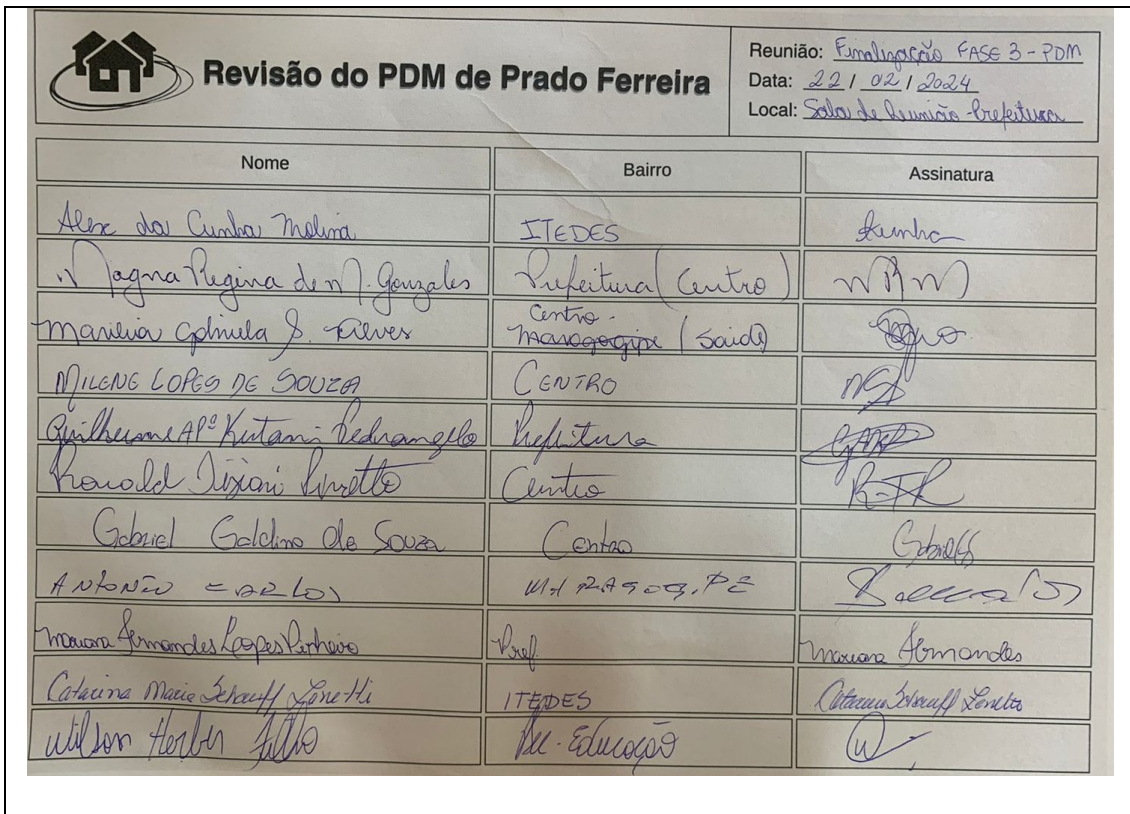 Revisão do PDM de Prado Ferreira
Reunião: Finalização FASE 3 - PDM
Data: 22 / 02 / 2024
Local: Sala de Reunião - Prefeitura
Nome Bairro Assinatura
Alex da Cunha Molina ITEDES Cunha
Magna Regina de M. Gonzales Prefeitura (Centro) MRM
Gabriela S. Centro - Maragogipe (Saúde)
MILENE LOPES DE SOUZA CENTRO
Guilherme APº Kutami Pedrangelo Prefeitura
Ronald Tiziani Centro
Gabriel Galdino de Souza Centro
ANTONIO CARLOS MARAGOGIPE
Mariana Fernandes Lopes Pinheiro Pref. Mariana Fernandes
Catarina Maria Schauff Zanetti ITEDES Catarina Schauff Zanetti
Wilson Filho Sec. Educação